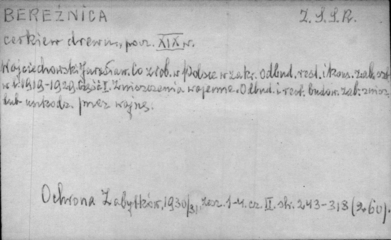 BEREŹNICA Z.S.S.R.
cerkiew drewn., pocz. XIX w.
Wojciechowski Jarosław. Co zrob. w Polsce w zakr. Odbud. rest. i kons. zab. szt.
w l. 1919-1929. Część I. Zniszczenia wojenne. Odbud. i rest. budow. zab. zniszcz.
lub uszkodz. przez wojnę.
Ochrona Zabytków, 1930/31, zesz. 1-4. cz. II. str. 243-318 (260).